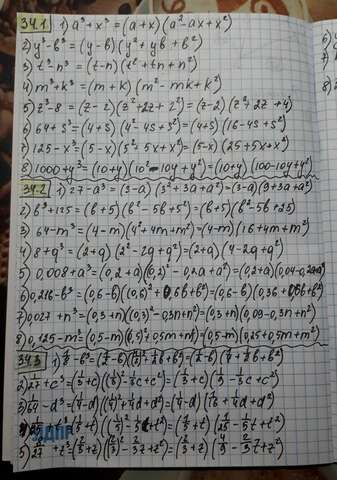 34.1 1) a³+x³=(a+x)(a²-ax+x²)
2) y³-b³=(y-b)(y²+yb+b²)
3) t³-n³=(t-n)(t²+tn+n²)
4) m³+k³=(m+k)(m²-mk+k²)
5) z³-8=(z-2)(z²+2z+2²)=(z-2)(z²+2z+4)
6) 64+s³=(4+s)(4²-4s+s²)=(4+s)(16-4s+s²)
7) 125-x³=(5-x)(5²+5x+x²)=(5-x)(25+5x+x²)
8) 1000+y³=(10+y)(10²-10y+y²)=(10+y)(100-10y+y²)
34.2 1) 27-a³=(3-a)(3²+3a+a²)=(3-a)(9+3a+a²)
2) b³+125=(b+5)(b²-5b+5²)=(b+5)(b²-5b+25)
3) 64-m³=(4-m)(4²+4m+m²)=(4-m)(16+4m+m²)
4) 8+q³=(2+q)(2²-2q+q²)=(2+q)(4-2q+q²)
5) 0,008+a³=(0,2+a)((0,2)²-0,2a+a²)=(0,2+a)(0,04-0,2a+a²)
6) 0,216-b³=(0,6-b)((0,6)²+0,6b+b²)=(0,6-b)(0,36+0,6b+b²)
7) 0,027+n³=(0,3+n)((0,3)²-0,3n+n²)=(0,3+n)(0,09-0,3n+n²)
8) 0,125-m³=(0,5-m)((0,5)²+0,5m+m²)=(0,5-m)(0,25+0,5m+m²)
34.3 1) 1/8-b³=(1/2-b)((1/2)²+1/2b+b²)=(1/2-b)(1/4+1/2b+b²)
2) 1/27+c³=(1/3+c)((1/3)²-1/3c+c²)=(1/3+c)(1/9-1/3c+c²)
3) 1/64-d³=(1/4-d)((1/4)²+1/4d+d²)=(1/4-d)(1/16+1/4d+d²)